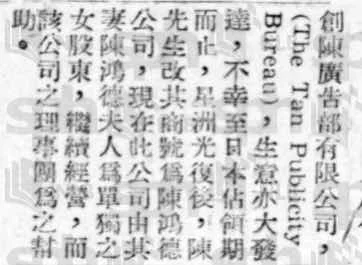 創陳廣告部有限公司，
(The Tan Publicity
Bureau)，生意亦大發
達，不幸至日本佔領期
而止，星洲光復後，陳
先生改其商號爲陳鴻德
公司，現在此公司由其
妻陳鴻德夫人爲單獨之
女股東，繼續經營，而
該公司之理事團爲之幫
助。